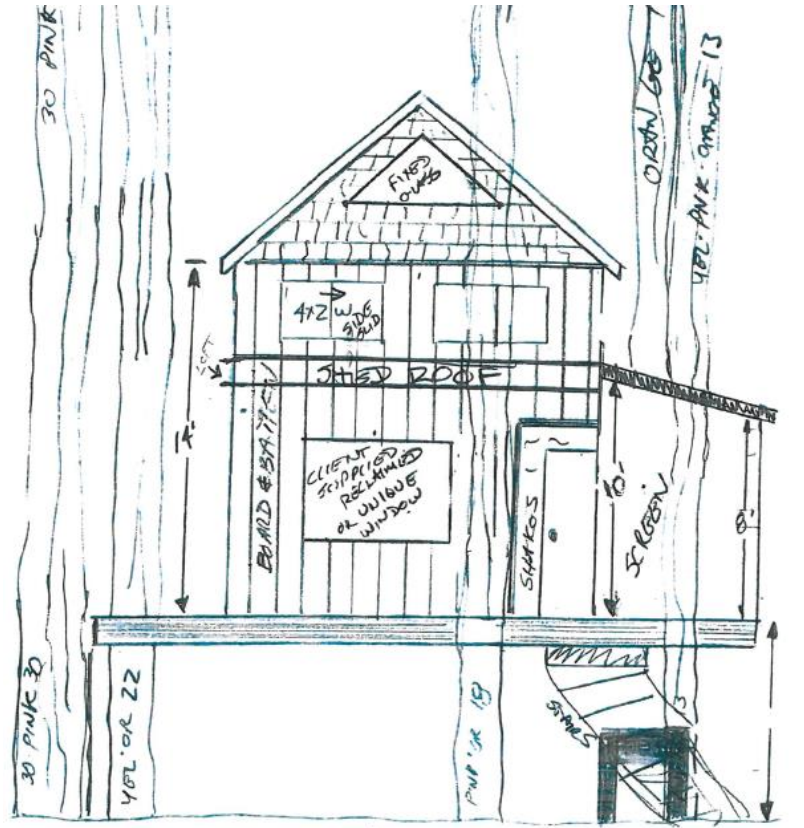 30 PINK
ORANGE
YEL·PNK·ORANGE 13
FIXED
GLASS
4x2 W
SIDE
SLID
SHED ROOF
14'
BOARD & BATTEN
CLIENT
SUPPLIED
RECLAIMED
OR UNIQUE
WINDOW
SHAKES
10'
SCREEN
8'
30 PINK 30
YEL·OR 22
PNK·OR 18
STAIRS